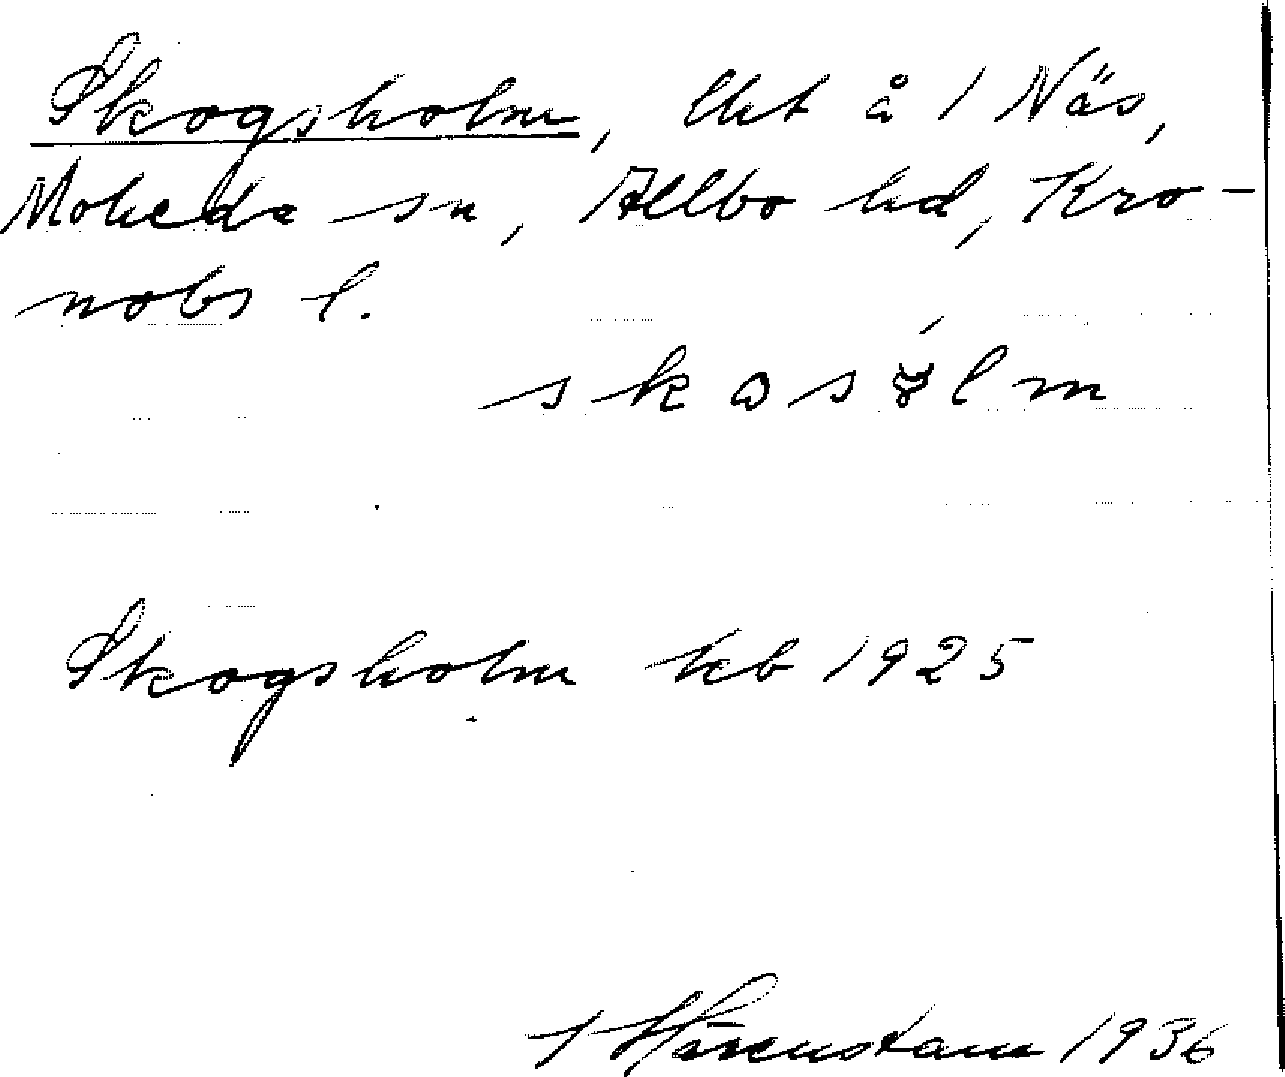 Skogsholm, lht å 1 Näs,
Moheda sn, Allbo hd, Kro-
nobs l.
skosólm
Skogsholm kb 1925
Hårenstam 1936